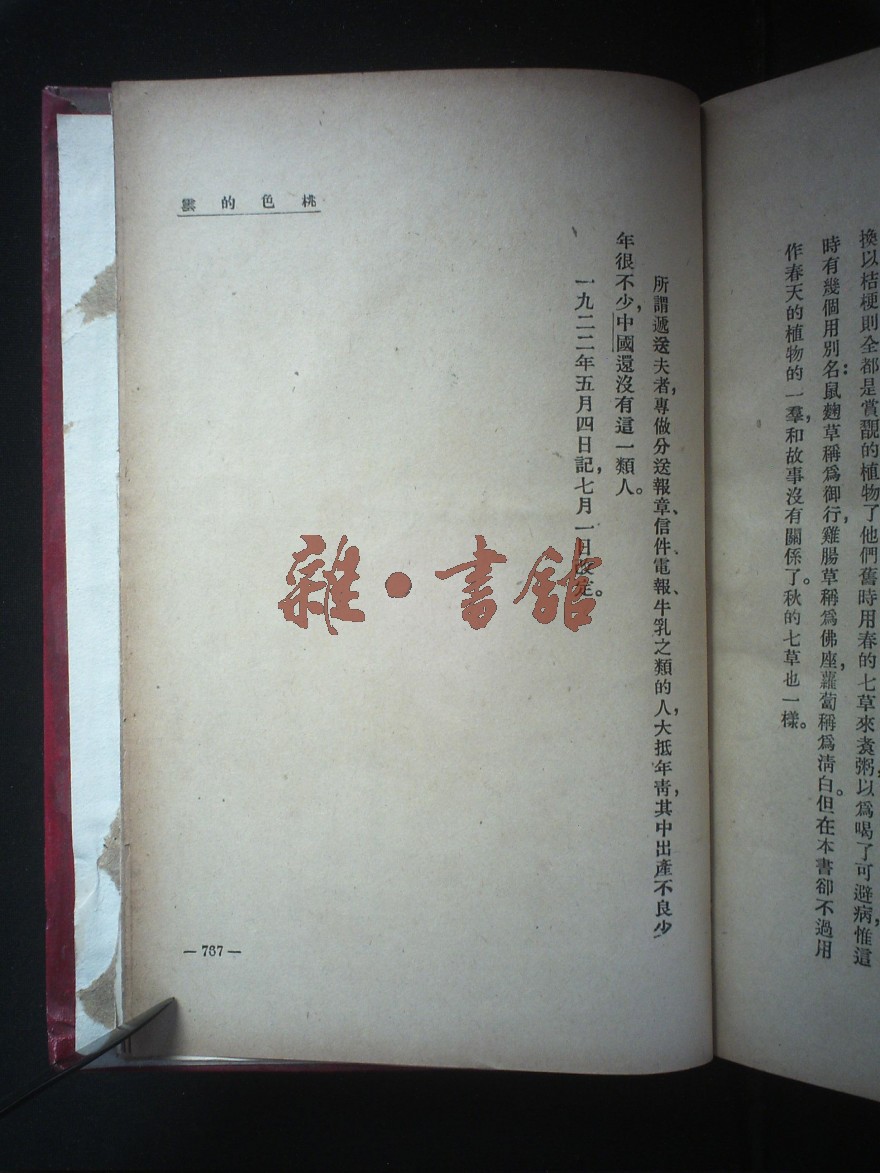 換以桔梗則全都是賞觀的植物了他們舊時用春的七草來煑粥，以爲喝了可避病，惟這
時有幾個用別名：鼠麴草稱爲御行，雞腸草稱爲佛座，蘿蔔稱爲淸白。但在本書卻不過用
作春天的植物的一羣，和故事沒有關係了。秋的七草也一樣。
桃色的雲
所謂遞送夫者，專做分送報章、信件、電報、牛乳之類的人，大抵年靑，其中出產不良少
年很不少，中國還沒有這一類人。
一九二二年五月四日記，七月一日改定。
雜·書館
— 787 —